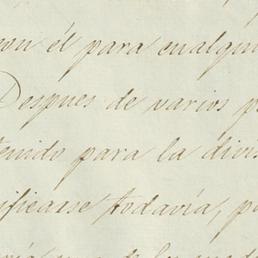 con él para cualqui
Despues de varios p
tenido para la divis
ificarse todavía, p